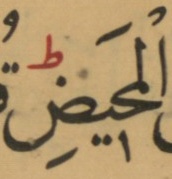 الْمَحِيضِ ۖ ط